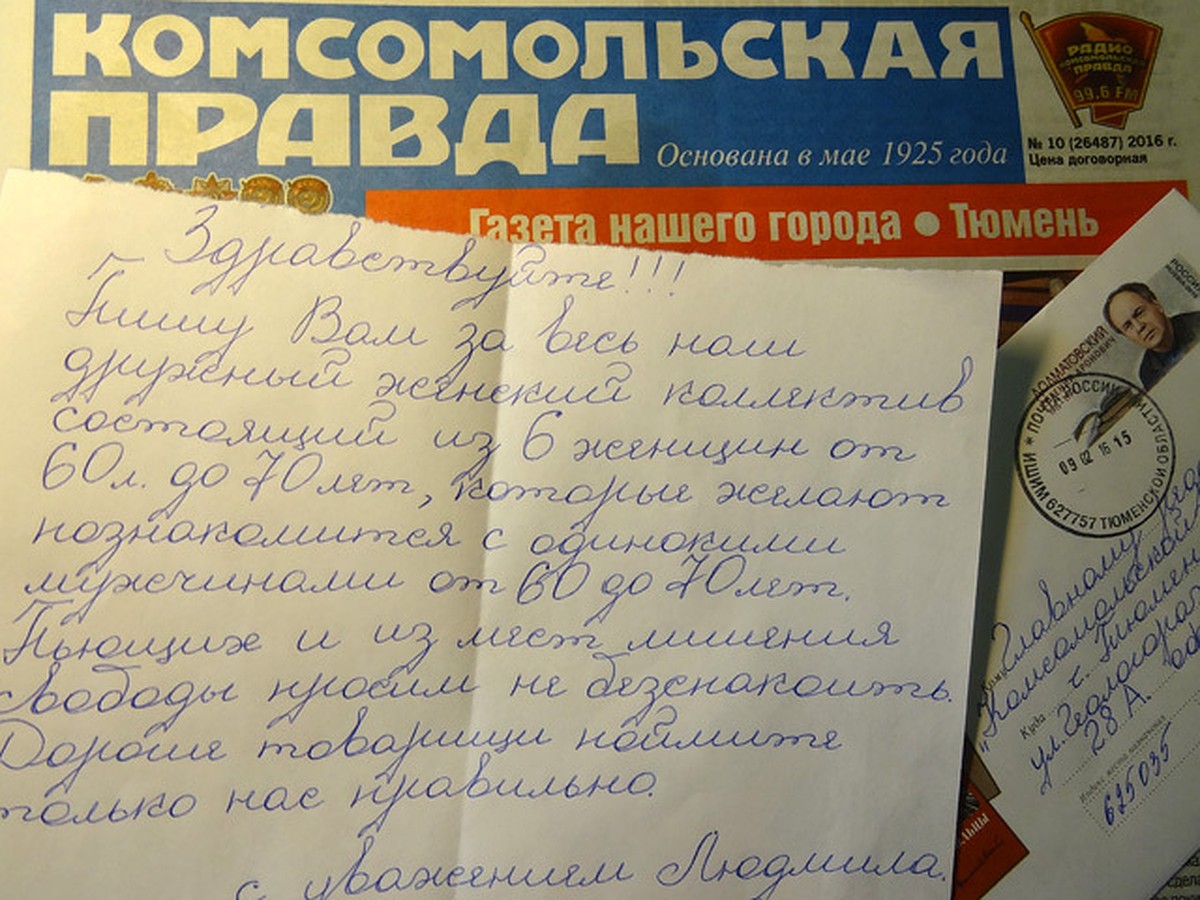 КОМСОМОЛЬСКАЯ
ПРАВДА
Основана в мае 1925 года
РАДИО
КОМСОМОЛЬСКАЯ
ПРАВДА
99.6 FM
№ 10 (26487) 2016 г.
Цена договорная
Газета нашего города • Тюмень
Здравствуйте!!!
Пишу Вам за весь наш
дружный женский коллектив
состоящий из 6 женщин от
60 л. до 70 лет, которые желают
познакомится с одинокими
мужчинами от 60 до 70 лет.
Пьющих и из мест лишения
свободы просим не безспакоить.
Дорогие товарищи поймите
только нас правильно.
с уважением Людмила.
ДОЛМАТОВСКИЙ
АРОНОВИЧ
ПОЧТА РОССИИ
09 02 16 15
ИШИМ 627757 ТЮМЕНСКОЙ ОБЛАСТИ
Кому Главному
"Комсомольской
Куда г. Тюмень
ул. Геологоразв
28 А.
Индекс места назначения
625035